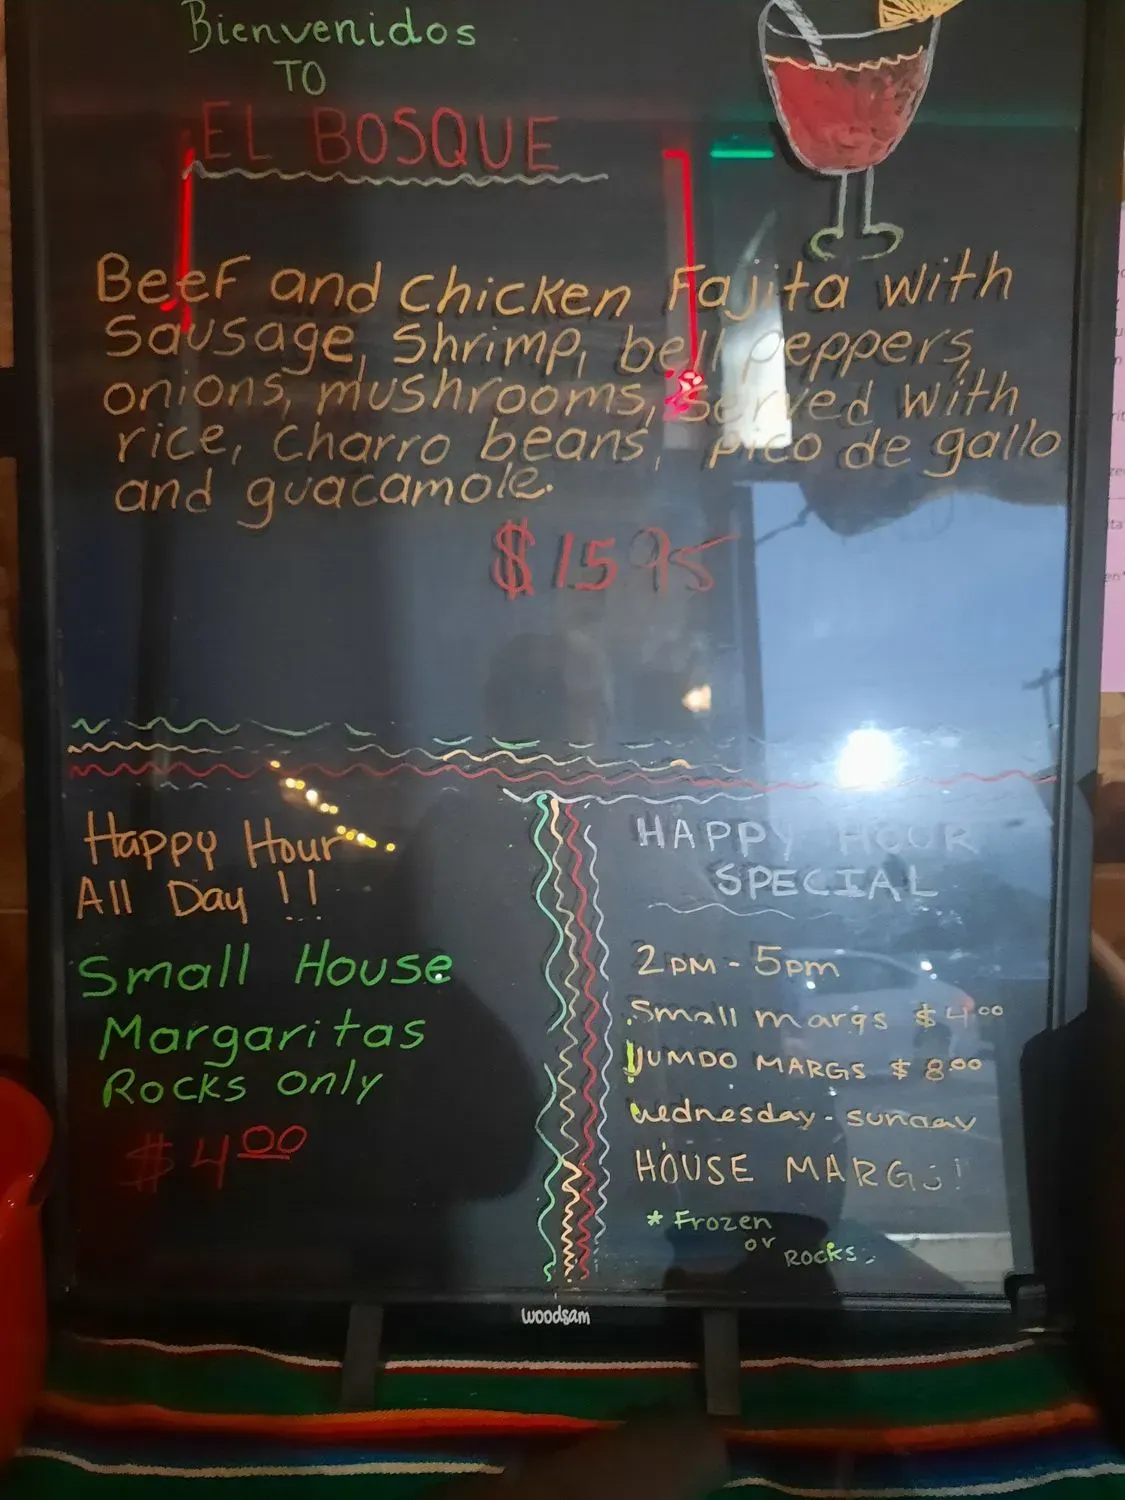 Bienvenidos
TO
EL BOSQUE
Beef and chicken Fajita with
Sausage, Shrimp, bell peppers,
onions, mushrooms, served with
rice, charro beans, pico de gallo
and guacamole.
$15 95
Happy Hour
All Day !!
Small House
Margaritas
Rocks only
$4 00
HAPPY HOUR
SPECIAL
2PM - 5pm
Small margs $4.00
JUMDO MARGS $8.00
wednesday - sunday
HOUSE MARGS!
* Frozen
or
Rocks
woodsam